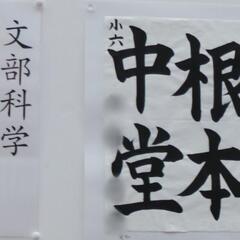 根本
中堂
小六
文部科学